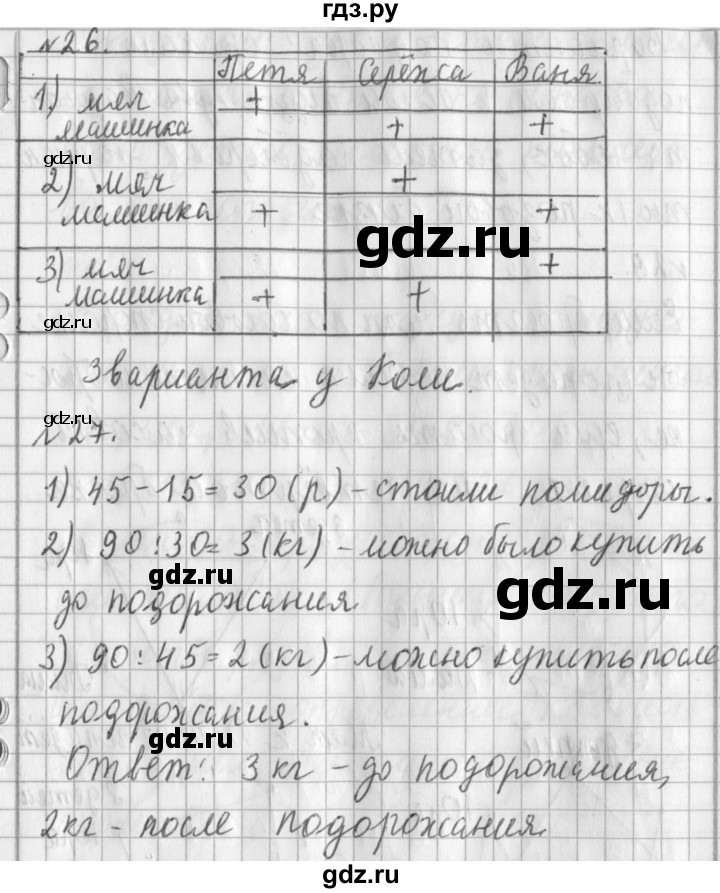 гдз.ру
№26.
Петя Серёжа Ваня
1) мяч +
машинка + +
gdz.ru
2) мяч +
машинка + +
gdz.ru
3) мяч +
машинка + +
gdz.ru
3 варианта у Коли.
gdz.ru
№27.
1) 45-15=30 (р) - стоили помидоры.
gdz.ru
2) 90:30=3 (кг) - можно было купить
gdz.ru
gdz.ru
до подорожания
3) 90:45=2 (кг) - можно купить после
подорожания.
gdz.ru
Ответ: 3 кг - до подорожания,
2кг - после подорожания
gdz.ru